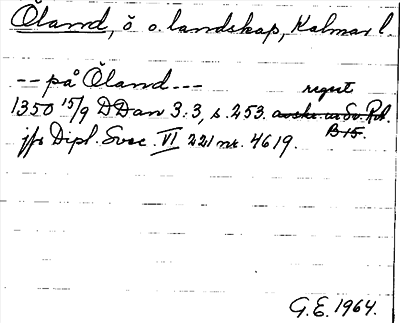 Öland, ö o. landskap, Kalmar l.
-- på Öland ---
regest
1350 15/9 DDan 3:3, s. 253. avskr. ur Sv. Rik.
B 15.
jfr Dipl. Svec. VI 221 nr. 4619.
G.E. 1964.